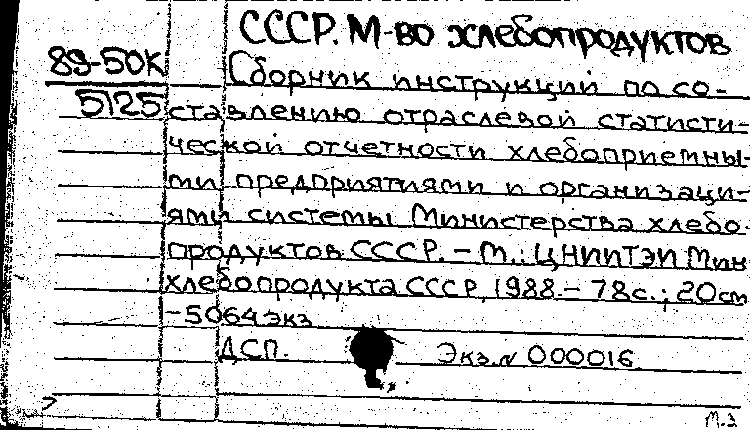 СССР. М-во хлебопродуктов
89-50К
5125
Сборник инструкций по со-
ставлению отраслевой статисти-
ческой отчетности хлебоприемны-
ми предприятиями и организаци-
ями системы Министерства хлебо-
продуктов СССР. – М.: ЦНИИТЭИ Мин
хлебопродукта СССР, 1988. – 78с.; 20см
-5064 экз
ДСП. Экз. № 000016
М-3